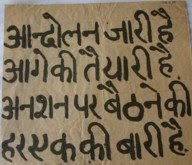 आन्दोलन जारी है
आगे की तैयारी है.
अनशन पर बैठने की
हर एक की बारी है.